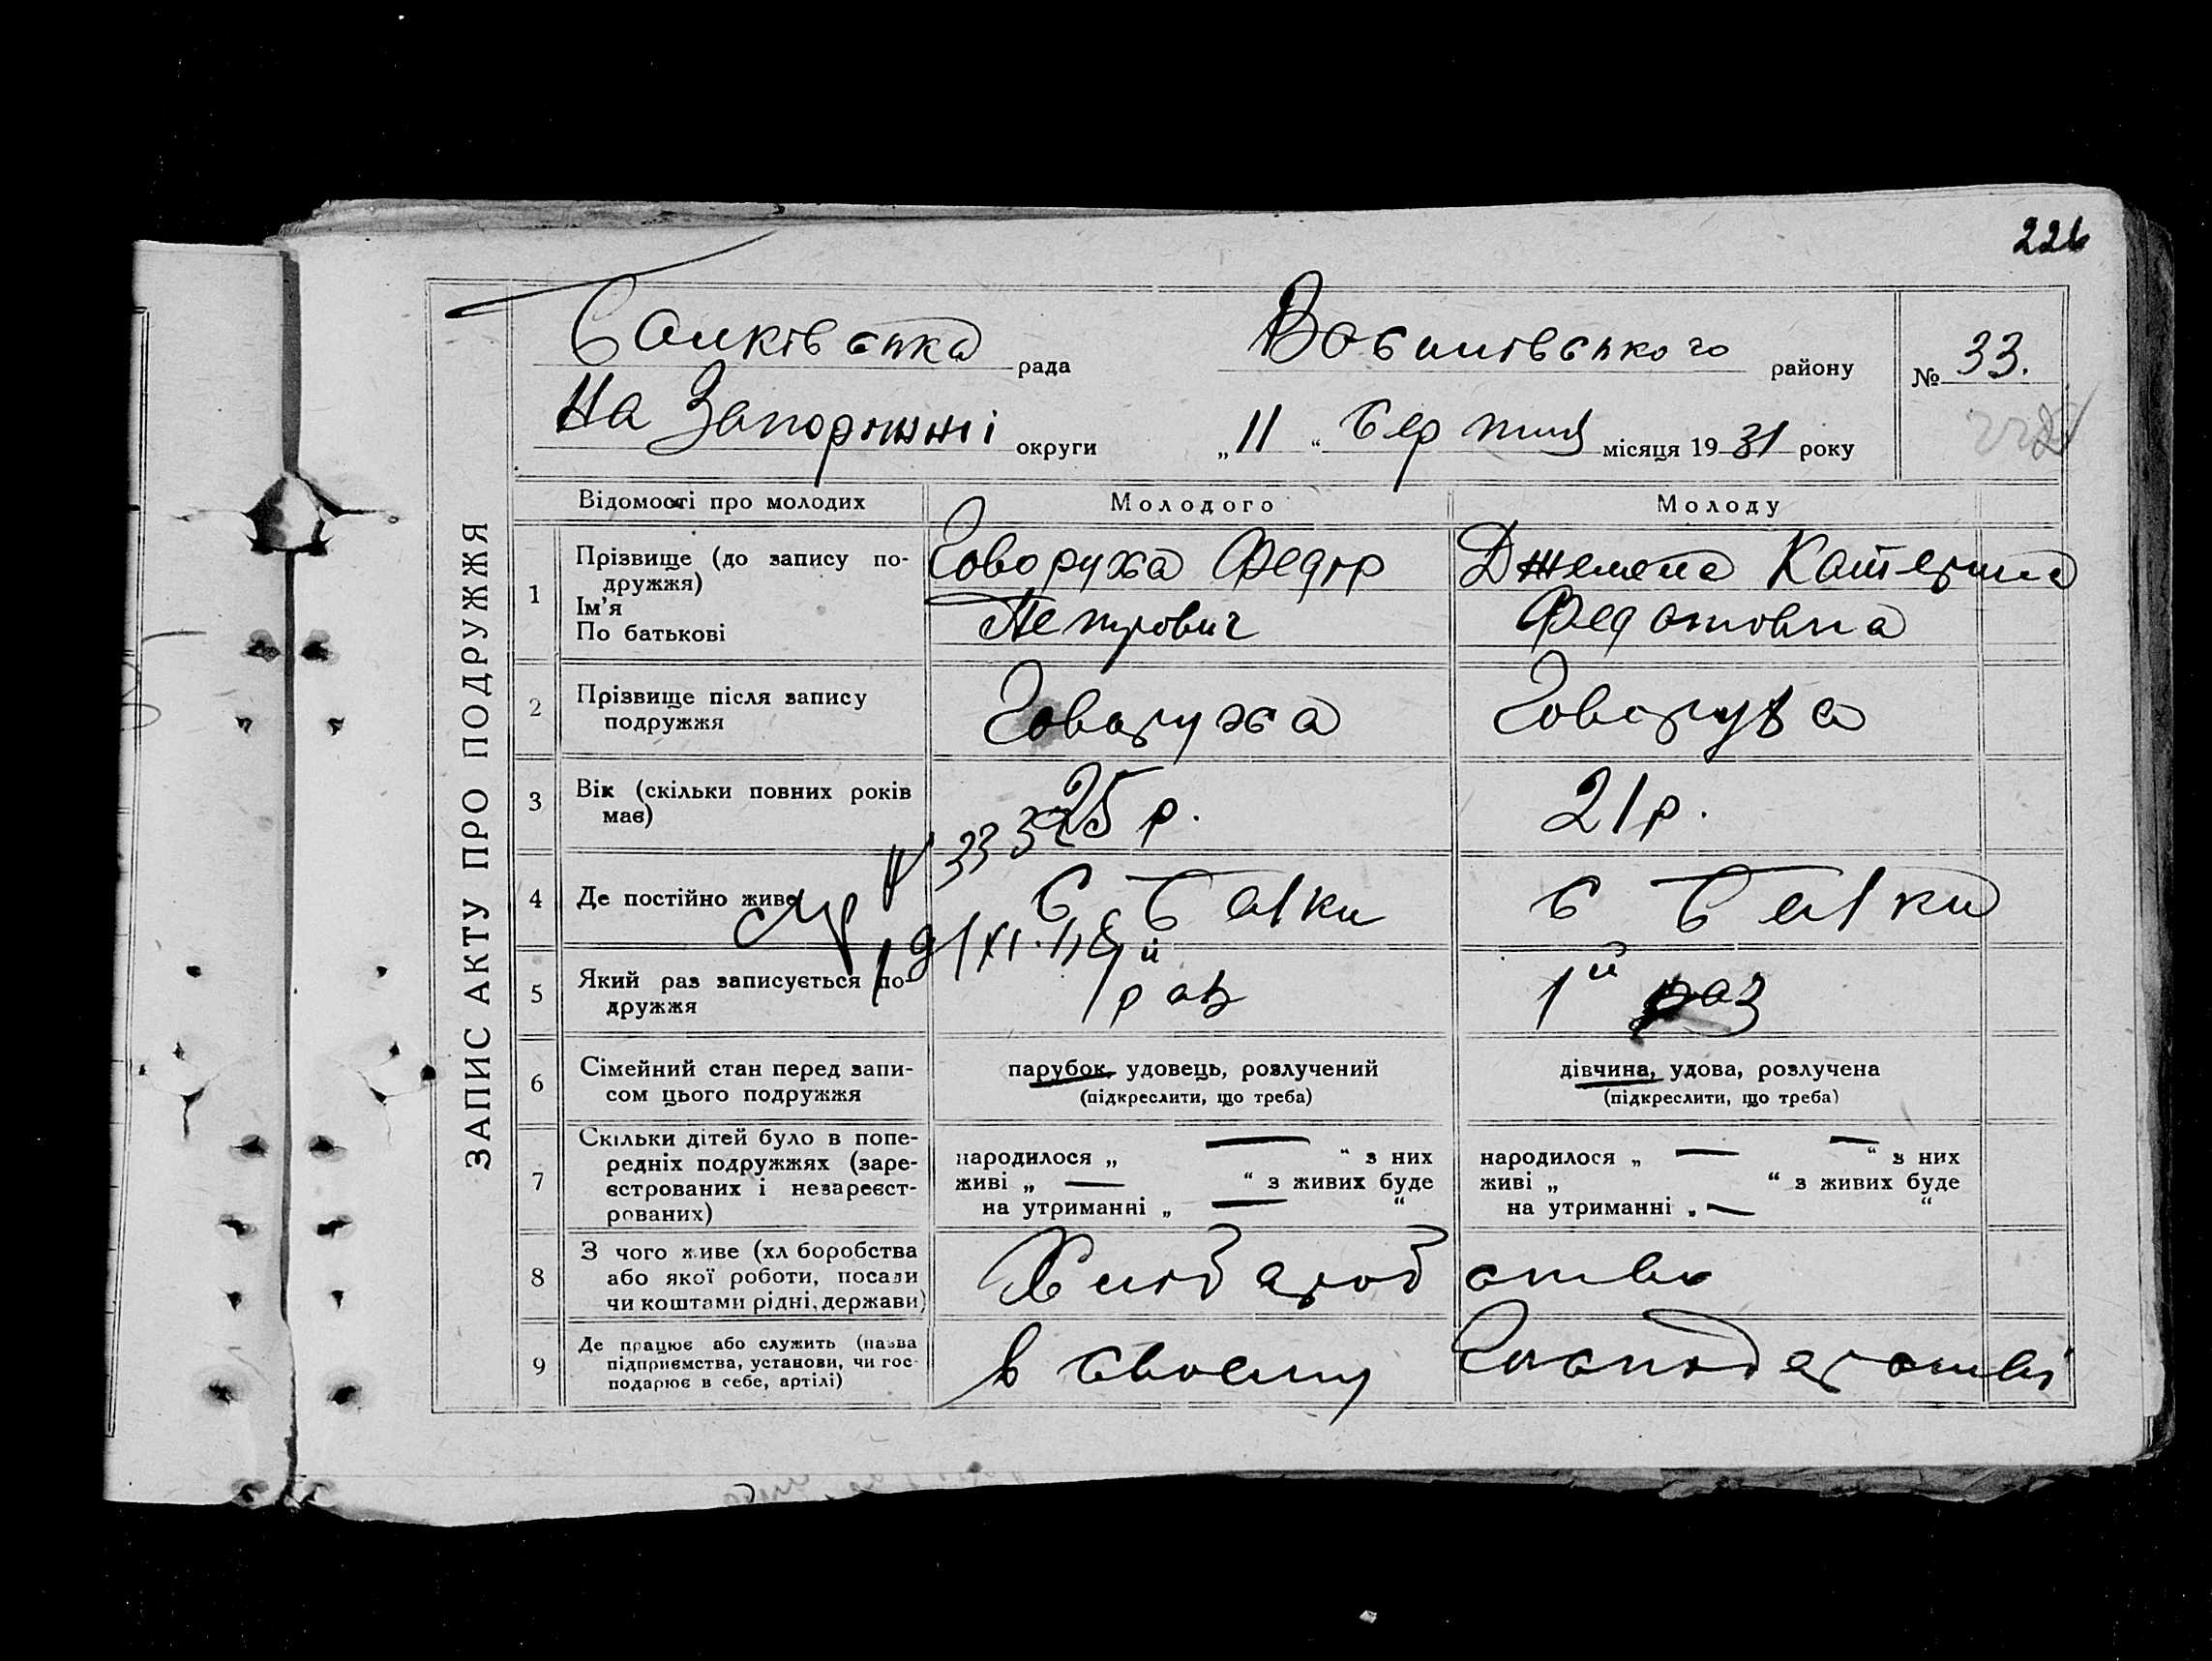 226
Балківська рада Василівського району № 33.
На Запоріжжі округи „11“ березня місяця 1931 року
ЗАПИС АКТУ ПРО ПОДРУЖЖЯ
Відомості про молодих Молодого Молоду
1 Прізвище (до запису подружжя) Ім’я По батькові
Говоруха Федір Петрович
Джемела Катерина Федотовна
2 Прізвище після запису подружжя
Говоруха Говоруха
3 Вік (скільки повних років має)
25 р. 21 р.
4 Де постійно живе
с Балки с Балки
5 Який раз записується подружжя
1й раз 1й раз
6 Сімейний стан перед записом цього подружжя
парубок, удовець, розлучений дівчина, удова, розлучена
(підкреслити, що треба) (підкреслити, що треба)
7 Скільки дітей було в попередніх подружжях (зареєстрованих і незареєстрованих)
народилося „ — “ з них народилося „ — “ з них
живі „ — “ з живих буде живі „ — “ з живих буде
на утриманні „ — “ на утриманні „ — “
8 З чого живе (хліборобства або якої роботи, посади чи коштами рідні, держави)
Хліборобство
9 Де працює або служить (назва підприємства, установи, чи господарює в себе, артілі)
в своєму господарстві